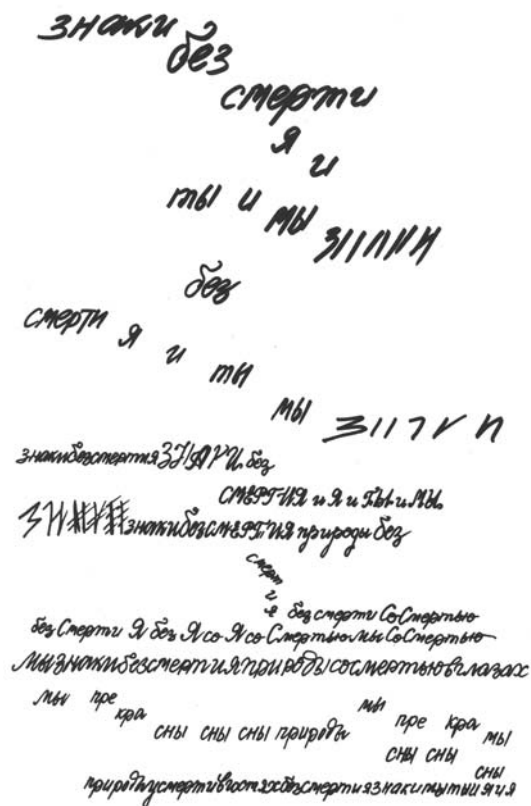 знаки
без
смерти
я и
ты и мы знаки
без
смерти я и ты
мы
знакибезсмертия ЗНАКИ без
СМЕРТИЯ и Я и ТЫ и МЫ
знакибезСМЕРТИЯ природы без
смерт
и
я без смерти Со Смертью
без Смерти Я без Я со Я со Смертью мы Со Смертью
мызнакибезсмертияприродысосмертьювглазах
мы пре кра сны сны сны природы мы пре кра мы
сны сны сны